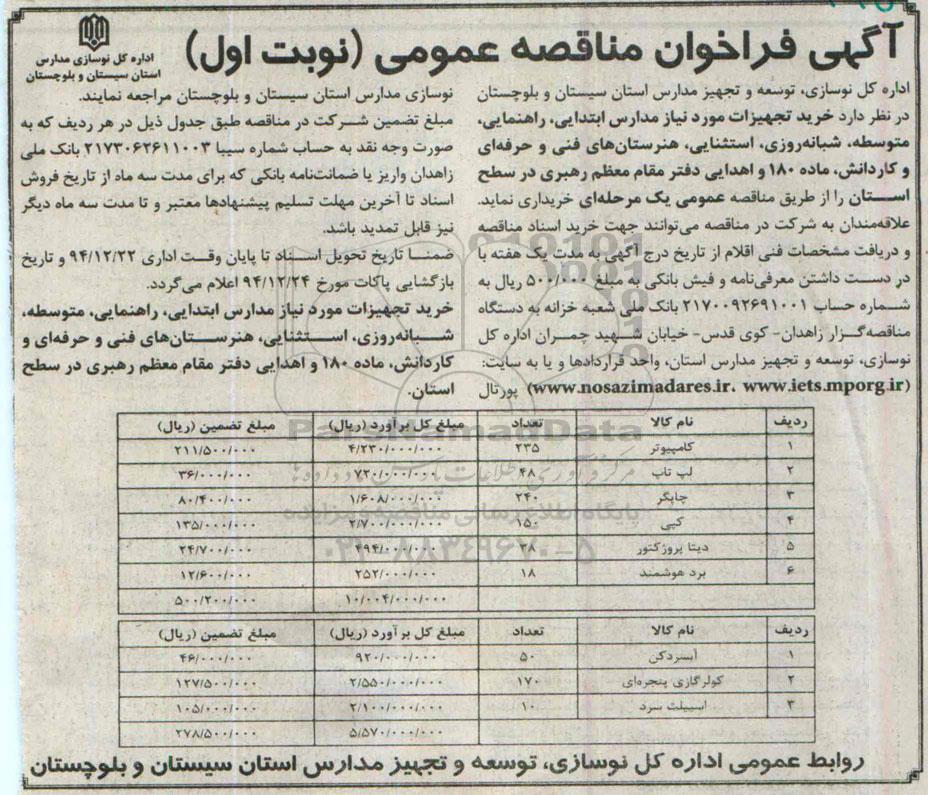 آگهی فراخوان مناقصه عمومی (نوبت اول)
اداره کل نوسازی مدارس
استان سیستان و بلوچستان
اداره کل نوسازی، توسعه و تجهیز مدارس استان سیستان و بلوچستان
در نظر دارد خرید تجهیزات مورد نیاز مدارس ابتدایی، راهنمایی،
متوسطه، شبانه‌روزی، استثنایی، هنرستان‌های فنی و حرفه‌ای
و کاردانش، ماده ۱۸۰ و اهدایی دفتر مقام معظم رهبری در سطح
استان را از طریق مناقصه عمومی یک مرحله‌ای خریداری نماید.
علاقه‌مندان به شرکت در مناقصه می‌توانند جهت خرید اسناد مناقصه
و دریافت مشخصات فنی اقلام از تاریخ درج آگهی به مدت یک هفته با
در دست داشتن معرفی‌نامه و فیش بانکی به مبلغ ۵۰۰/۰۰۰ ریال به
شماره حساب ۲۱۷۰۰۹۲۶۹۱۰۰۱ بانک ملی شعبه خزانه به دستگاه
مناقصه‌گزار زاهدان- کوی قدس- خیابان شهید چمران اداره کل
نوسازی، توسعه و تجهیز مدارس استان، واحد قراردادها و یا به سایت:
(www.nosazimadares.ir، www.iets.mporg.ir) پورتال
نوسازی مدارس استان سیستان و بلوچستان مراجعه نمایند.
مبلغ تضمین شرکت در مناقصه طبق جدول ذیل در هر ردیف که به
صورت وجه نقد به حساب شماره سیبا ۲۱۷۳۰۶۲۶۱۱۰۰۳ بانک ملی
زاهدان واریز یا ضمانت‌نامه بانکی که برای مدت سه ماه از تاریخ فروش
اسناد تا آخرین مهلت تسلیم پیشنهادها معتبر و تا مدت سه ماه دیگر
نیز قابل تمدید باشد.
ضمنا تاریخ تحویل اسناد تا پایان وقت اداری ۹۴/۱۲/۲۲ و تاریخ
بازگشایی پاکات مورخ ۹۴/۱۲/۲۴ اعلام می‌گردد.
خرید تجهیزات مورد نیاز مدارس ابتدایی، راهنمایی، متوسطه،
شبانه‌روزی، استثنایی، هنرستان‌های فنی و حرفه‌ای و
کاردانش، ماده ۱۸۰ و اهدایی دفتر مقام معظم رهبری در سطح
استان.
ردیف نام کالا تعداد مبلغ کل برآورد (ریال) مبلغ تضمین (ریال)
۱ کامپیوتر ۲۳۵ ۴/۲۳۰/۰۰۰/۰۰۰ ۲۱۱/۵۰۰/۰۰۰
۲ لپ تاپ ۴۸ ۷۲۰/۰۰۰/۰۰۰ ۳۶/۰۰۰/۰۰۰
۳ چاپگر ۲۴۰ ۱/۶۰۸/۰۰۰/۰۰۰ ۸۰/۴۰۰/۰۰۰
۴ کپی ۱۵۰ ۲/۷۰۰/۰۰۰/۰۰۰ ۱۳۵/۰۰۰/۰۰۰
۵ دیتا پروژکتور ۳۸ ۴۹۴/۰۰۰/۰۰۰ ۲۴/۷۰۰/۰۰۰
۶ برد هوشمند ۱۸ ۲۵۲/۰۰۰/۰۰۰ ۱۲/۶۰۰/۰۰۰
۱۰/۰۰۴/۰۰۰/۰۰۰ ۵۰۰/۲۰۰/۰۰۰
ردیف نام کالا تعداد مبلغ کل برآورد (ریال) مبلغ تضمین (ریال)
۱ آبسردکن ۵۰ ۹۲۰/۰۰۰/۰۰۰ ۴۶/۰۰۰/۰۰۰
۲ کولرگازی پنجره‌ای ۱۷۰ ۲/۵۵۰/۰۰۰/۰۰۰ ۱۲۷/۵۰۰/۰۰۰
۳ اسپیلت سرد ۱۰ ۲/۱۰۰/۰۰۰/۰۰۰ ۱۰۵/۰۰۰/۰۰۰
۵/۵۷۰/۰۰۰/۰۰۰ ۲۷۸/۵۰۰/۰۰۰
روابط عمومی اداره کل نوسازی، توسعه و تجهیز مدارس استان سیستان و بلوچستان
ParsNamadData
پایگاه اطلاع رسانی مناقصه و مزایده
۰۲۱-۸۸۳۴۹۶۷۰-۵